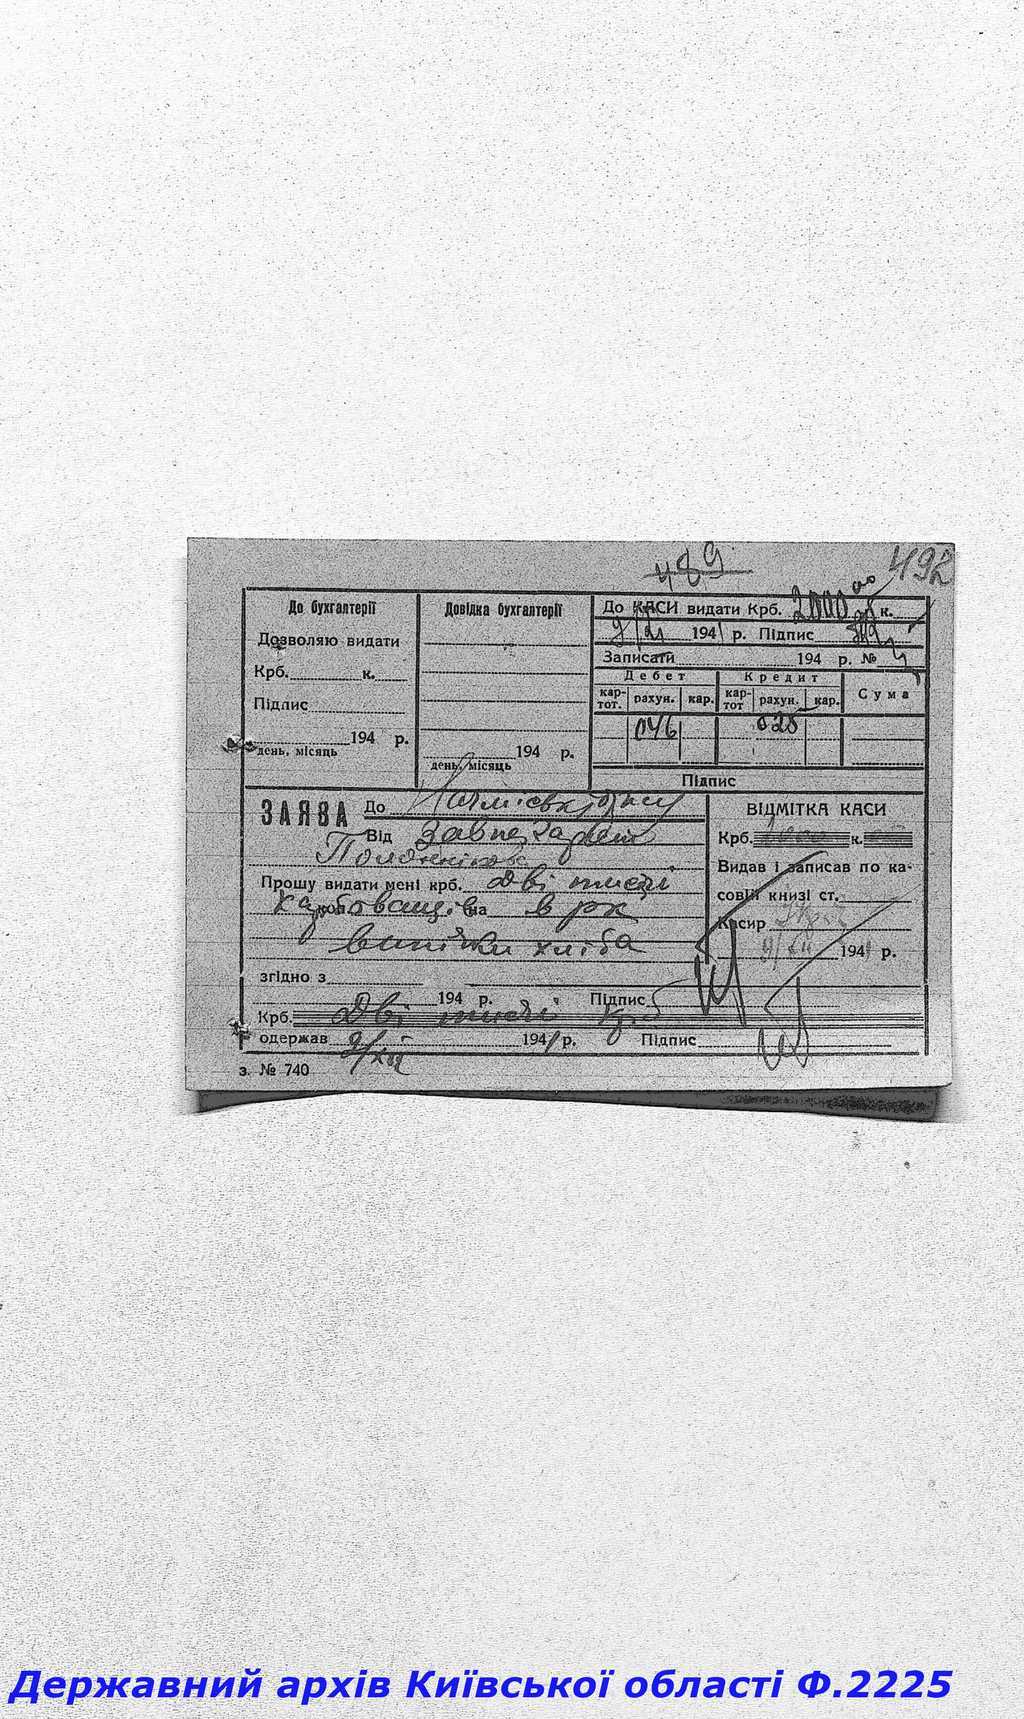 489
492
До бухгалтерії
Дозволяю видати
Крб. к.
Підпис
194 р.
день, місяць
Довідка бухгалтерії
194 р.
день, місяць
До КАСИ видати Крб. 2000 00 к.
9/XII 1941 р. Підпис
Записати 194 р. №
Дебет Кредит Сума
кар-тот. рахун. кар. кар-тот рахун. кар.
046 028
Підпис
ЗАЯВА До
Від Зав
Прошу видати мені крб. Дві тисячі
карбованців на в рк
випічки хліба
згідно з
194 р. Підпис
Крб. Дві тисячі крб
одержав 9/XII 1941 р. Підпис
з. № 740
ВІДМІТКА КАСИ
Крб. к.
Видав і записав по ка-
совій книзі ст.
Касир
9/XII 1941 р.
Державний архів Київської області Ф.2225